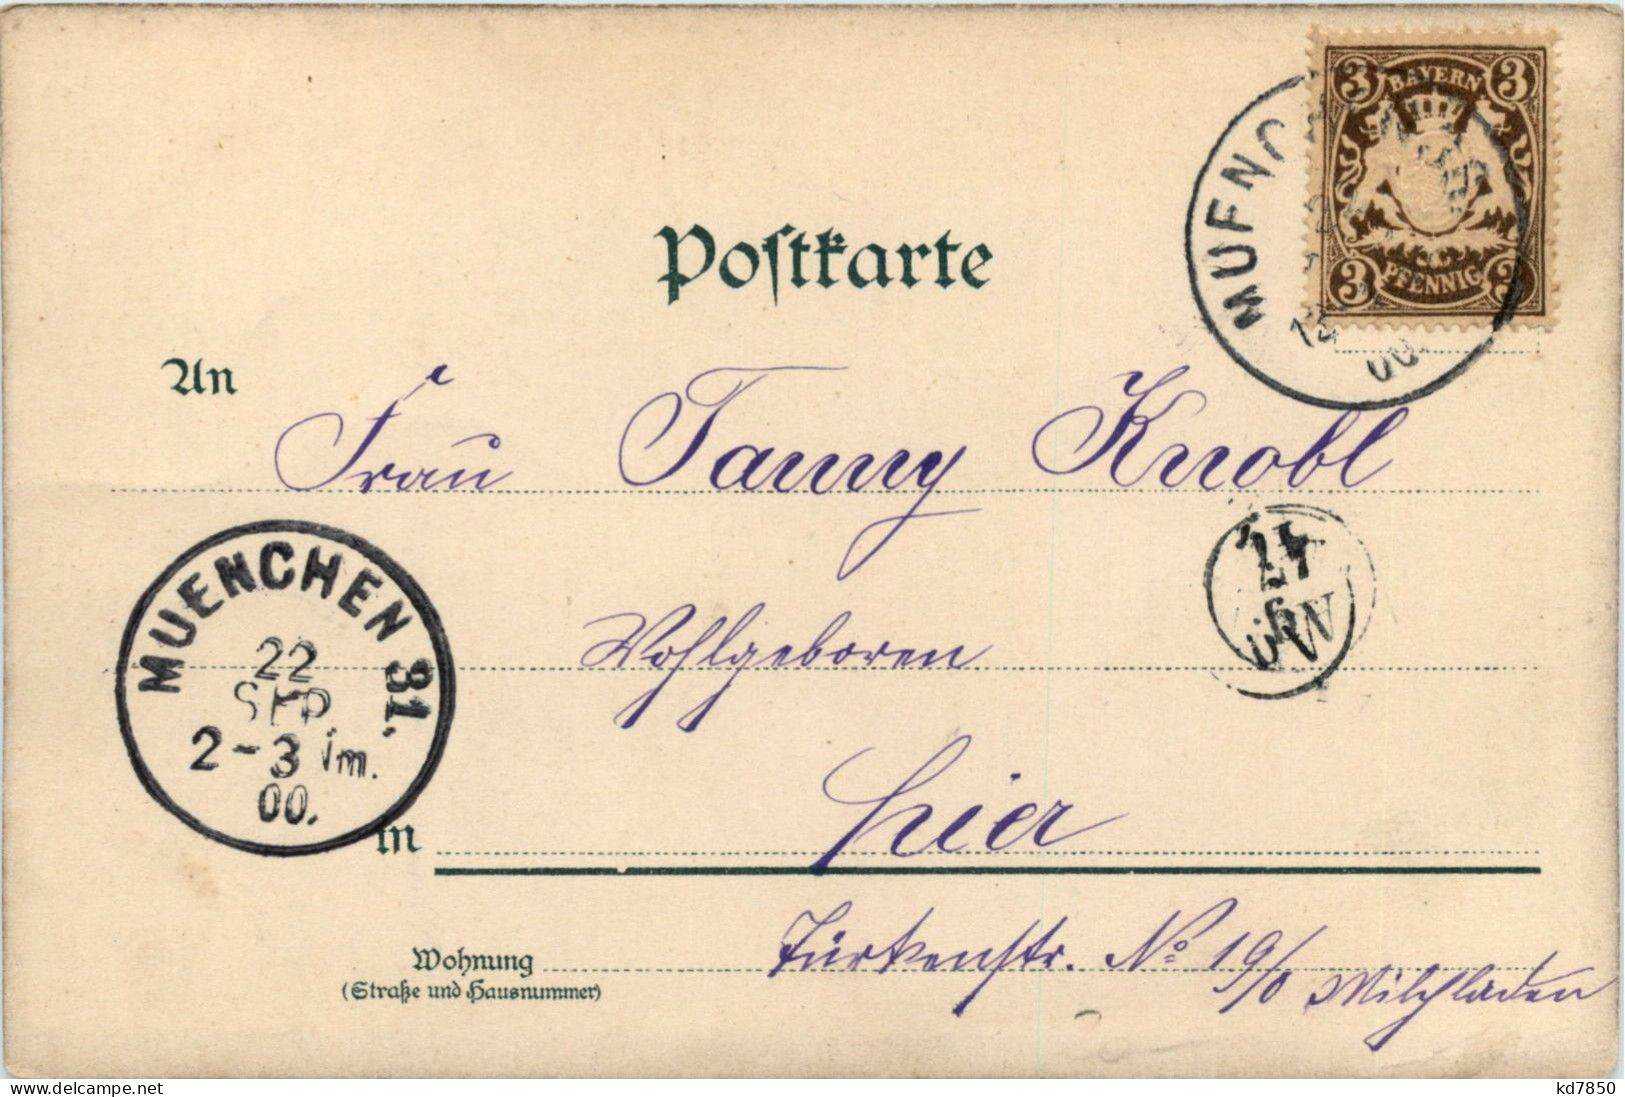 3 BAYERN 3
3 PFENNIG 3
MUENC
00.
Postkarte
An
Frau Fanny Knobl
MUENCHEN 31.
22
SEP
2-3 Nm.
00.
Wohlgeboren
in hier
Wohnung
(Straße und Hausnummer)
Türkenstr. No 19/0 Milchladen
delcampe.net
kd7850